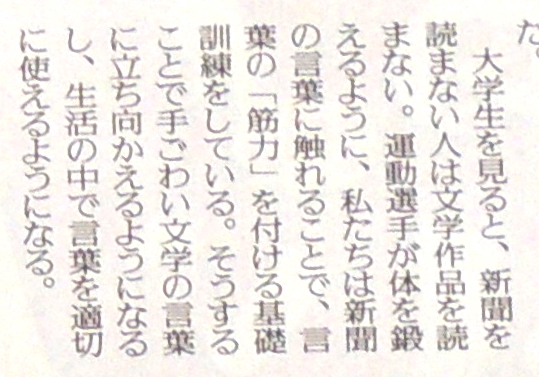 た。
大学生を見ると、新聞を
読まない人は文学作品を読
まない。運動選手が体を鍛
えるように、私たちは新聞
の言葉に触れることで、言
葉の「筋力」を付ける基礎
訓練をしている。そうする
ことで手ごわい文学の言葉
に立ち向かえるようになる
し、生活の中で言葉を適切
に使えるようになる。